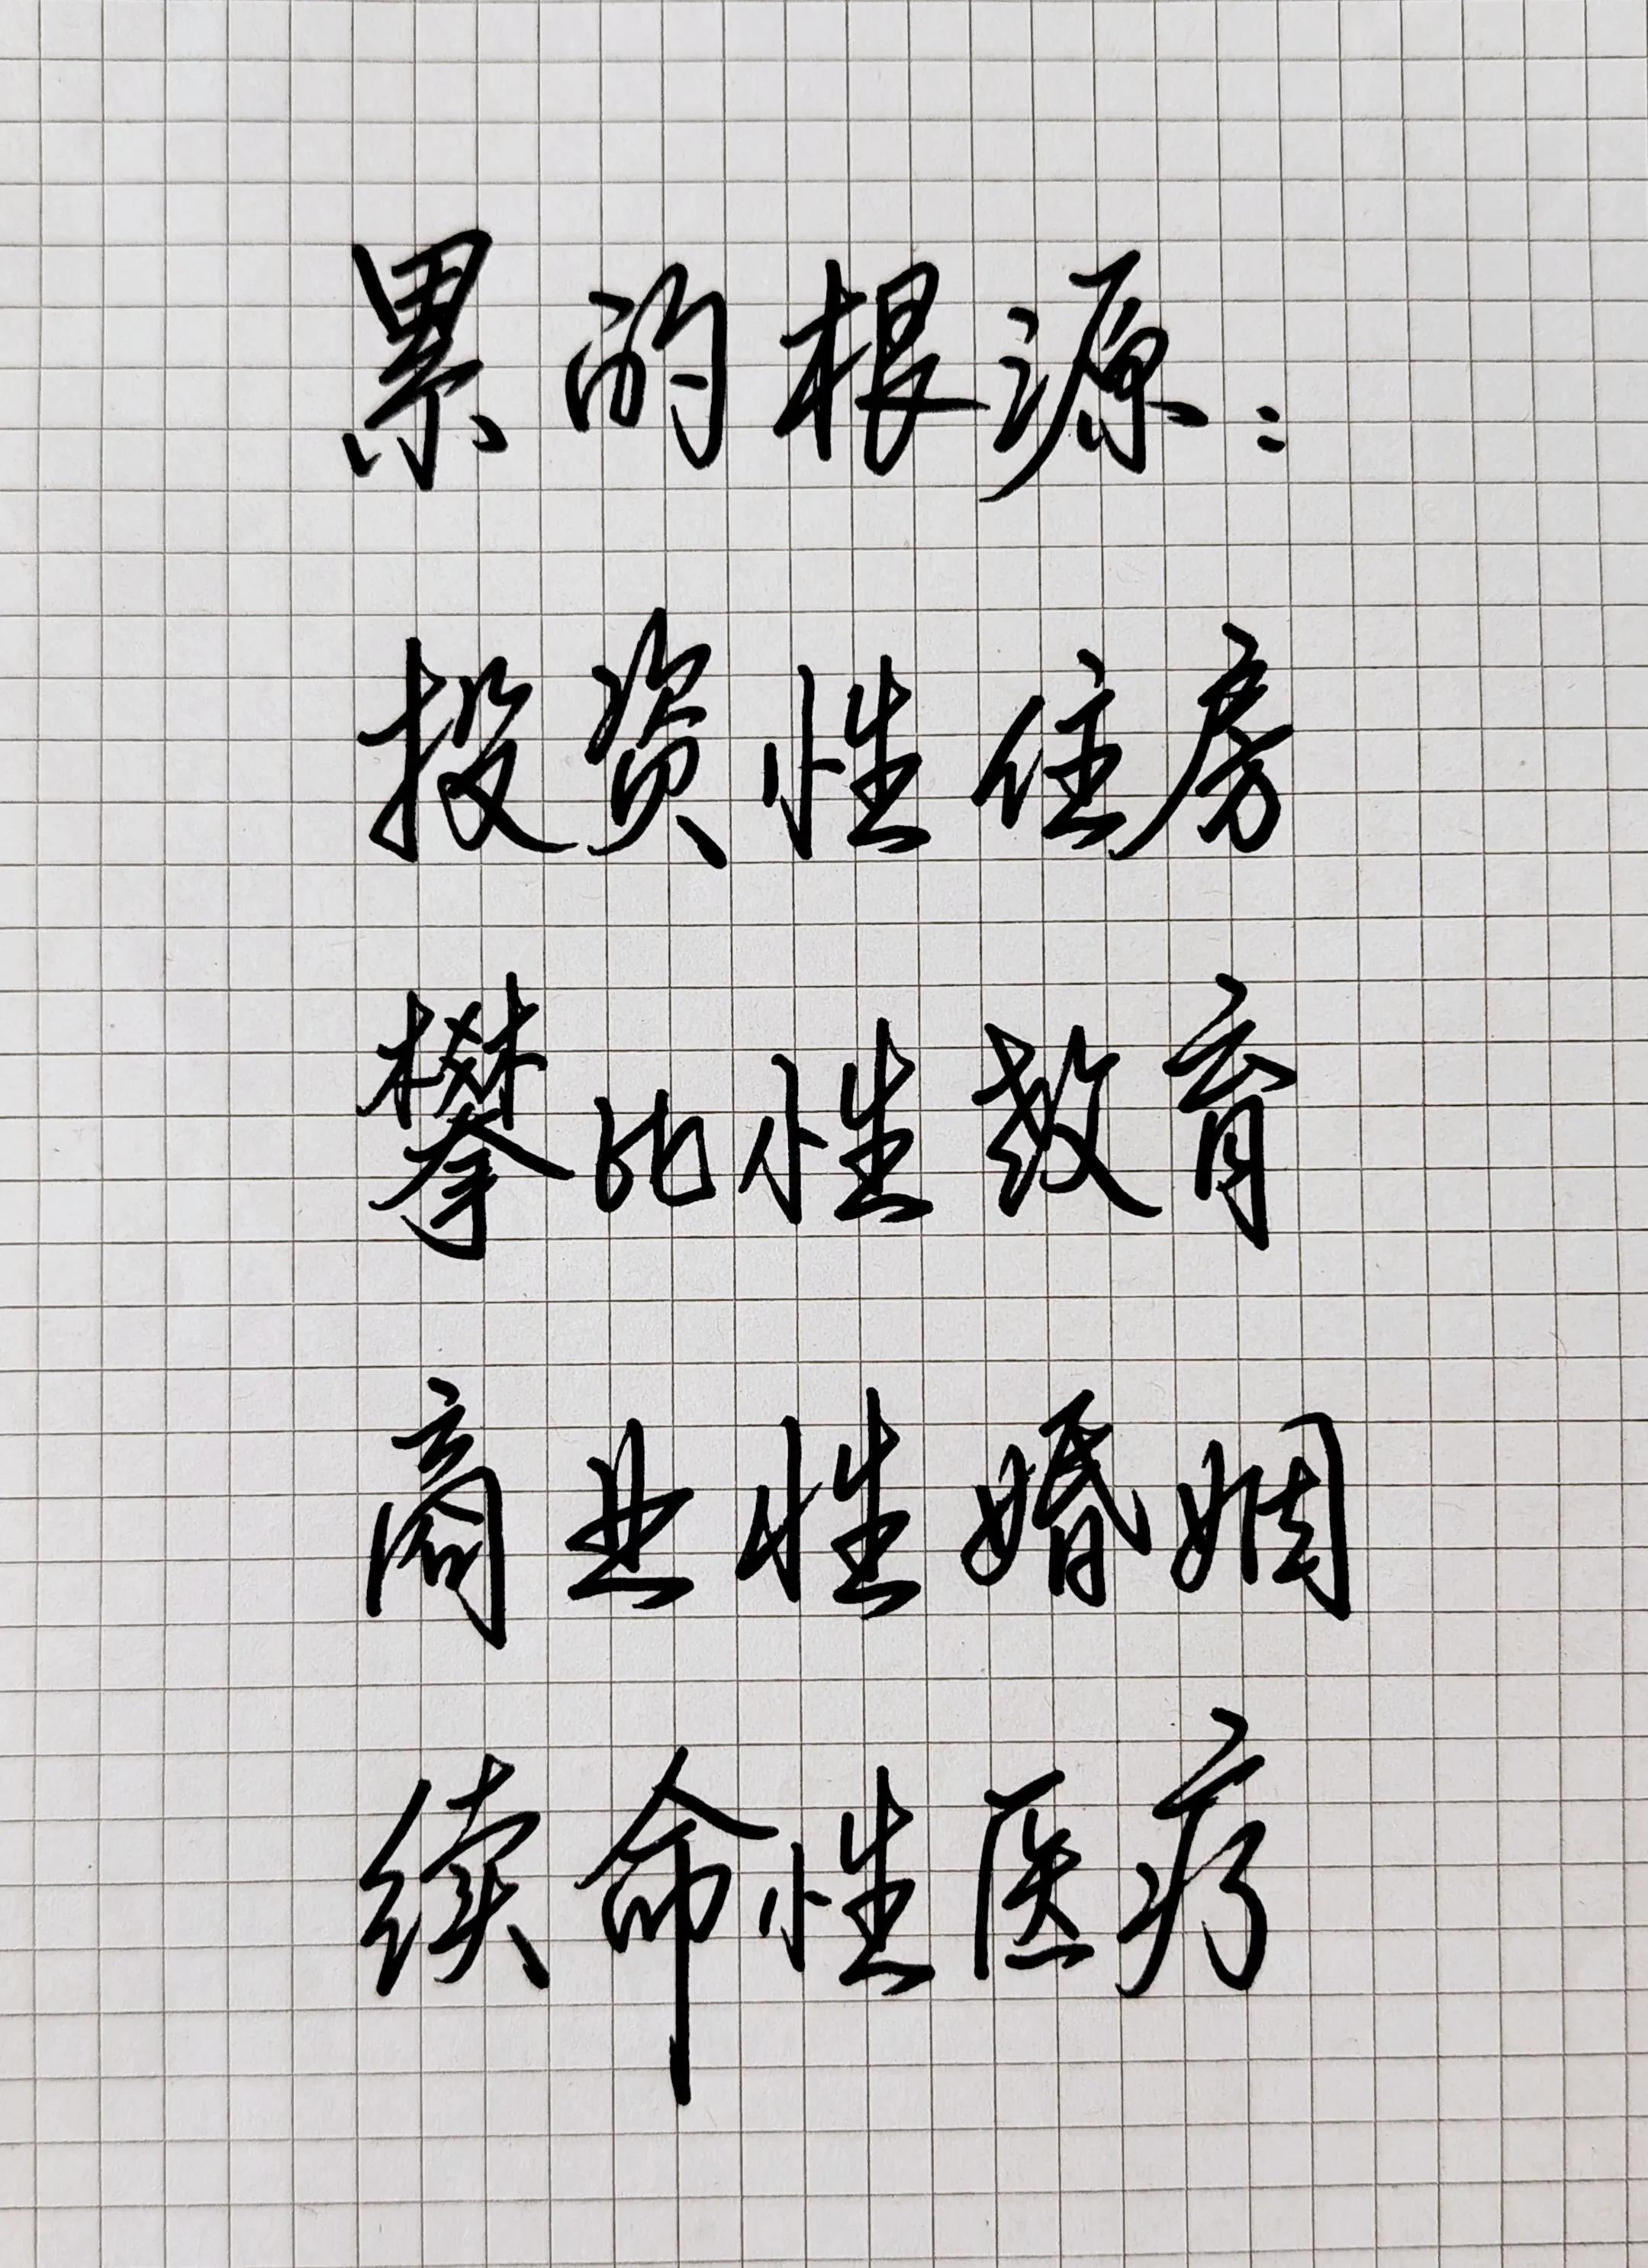 累的根源：
投资性住房
攀比性教育
商业性婚姻
续命性医疗